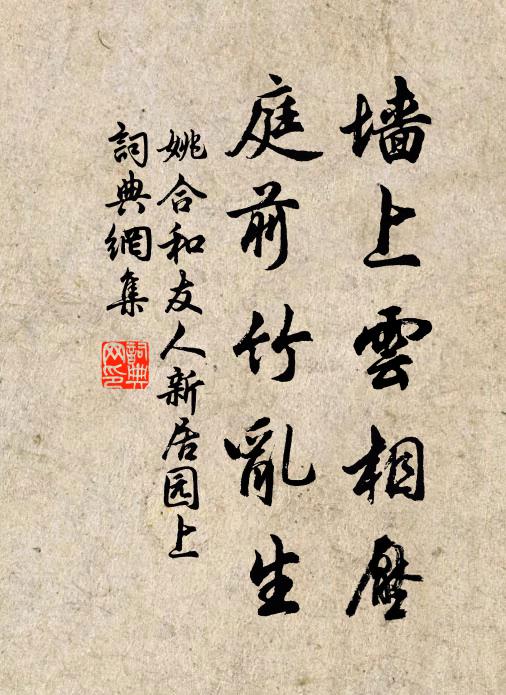 墙上雲相壓
庭前竹亂生
姚合和友人新居园上
詞典網集
詞典网印